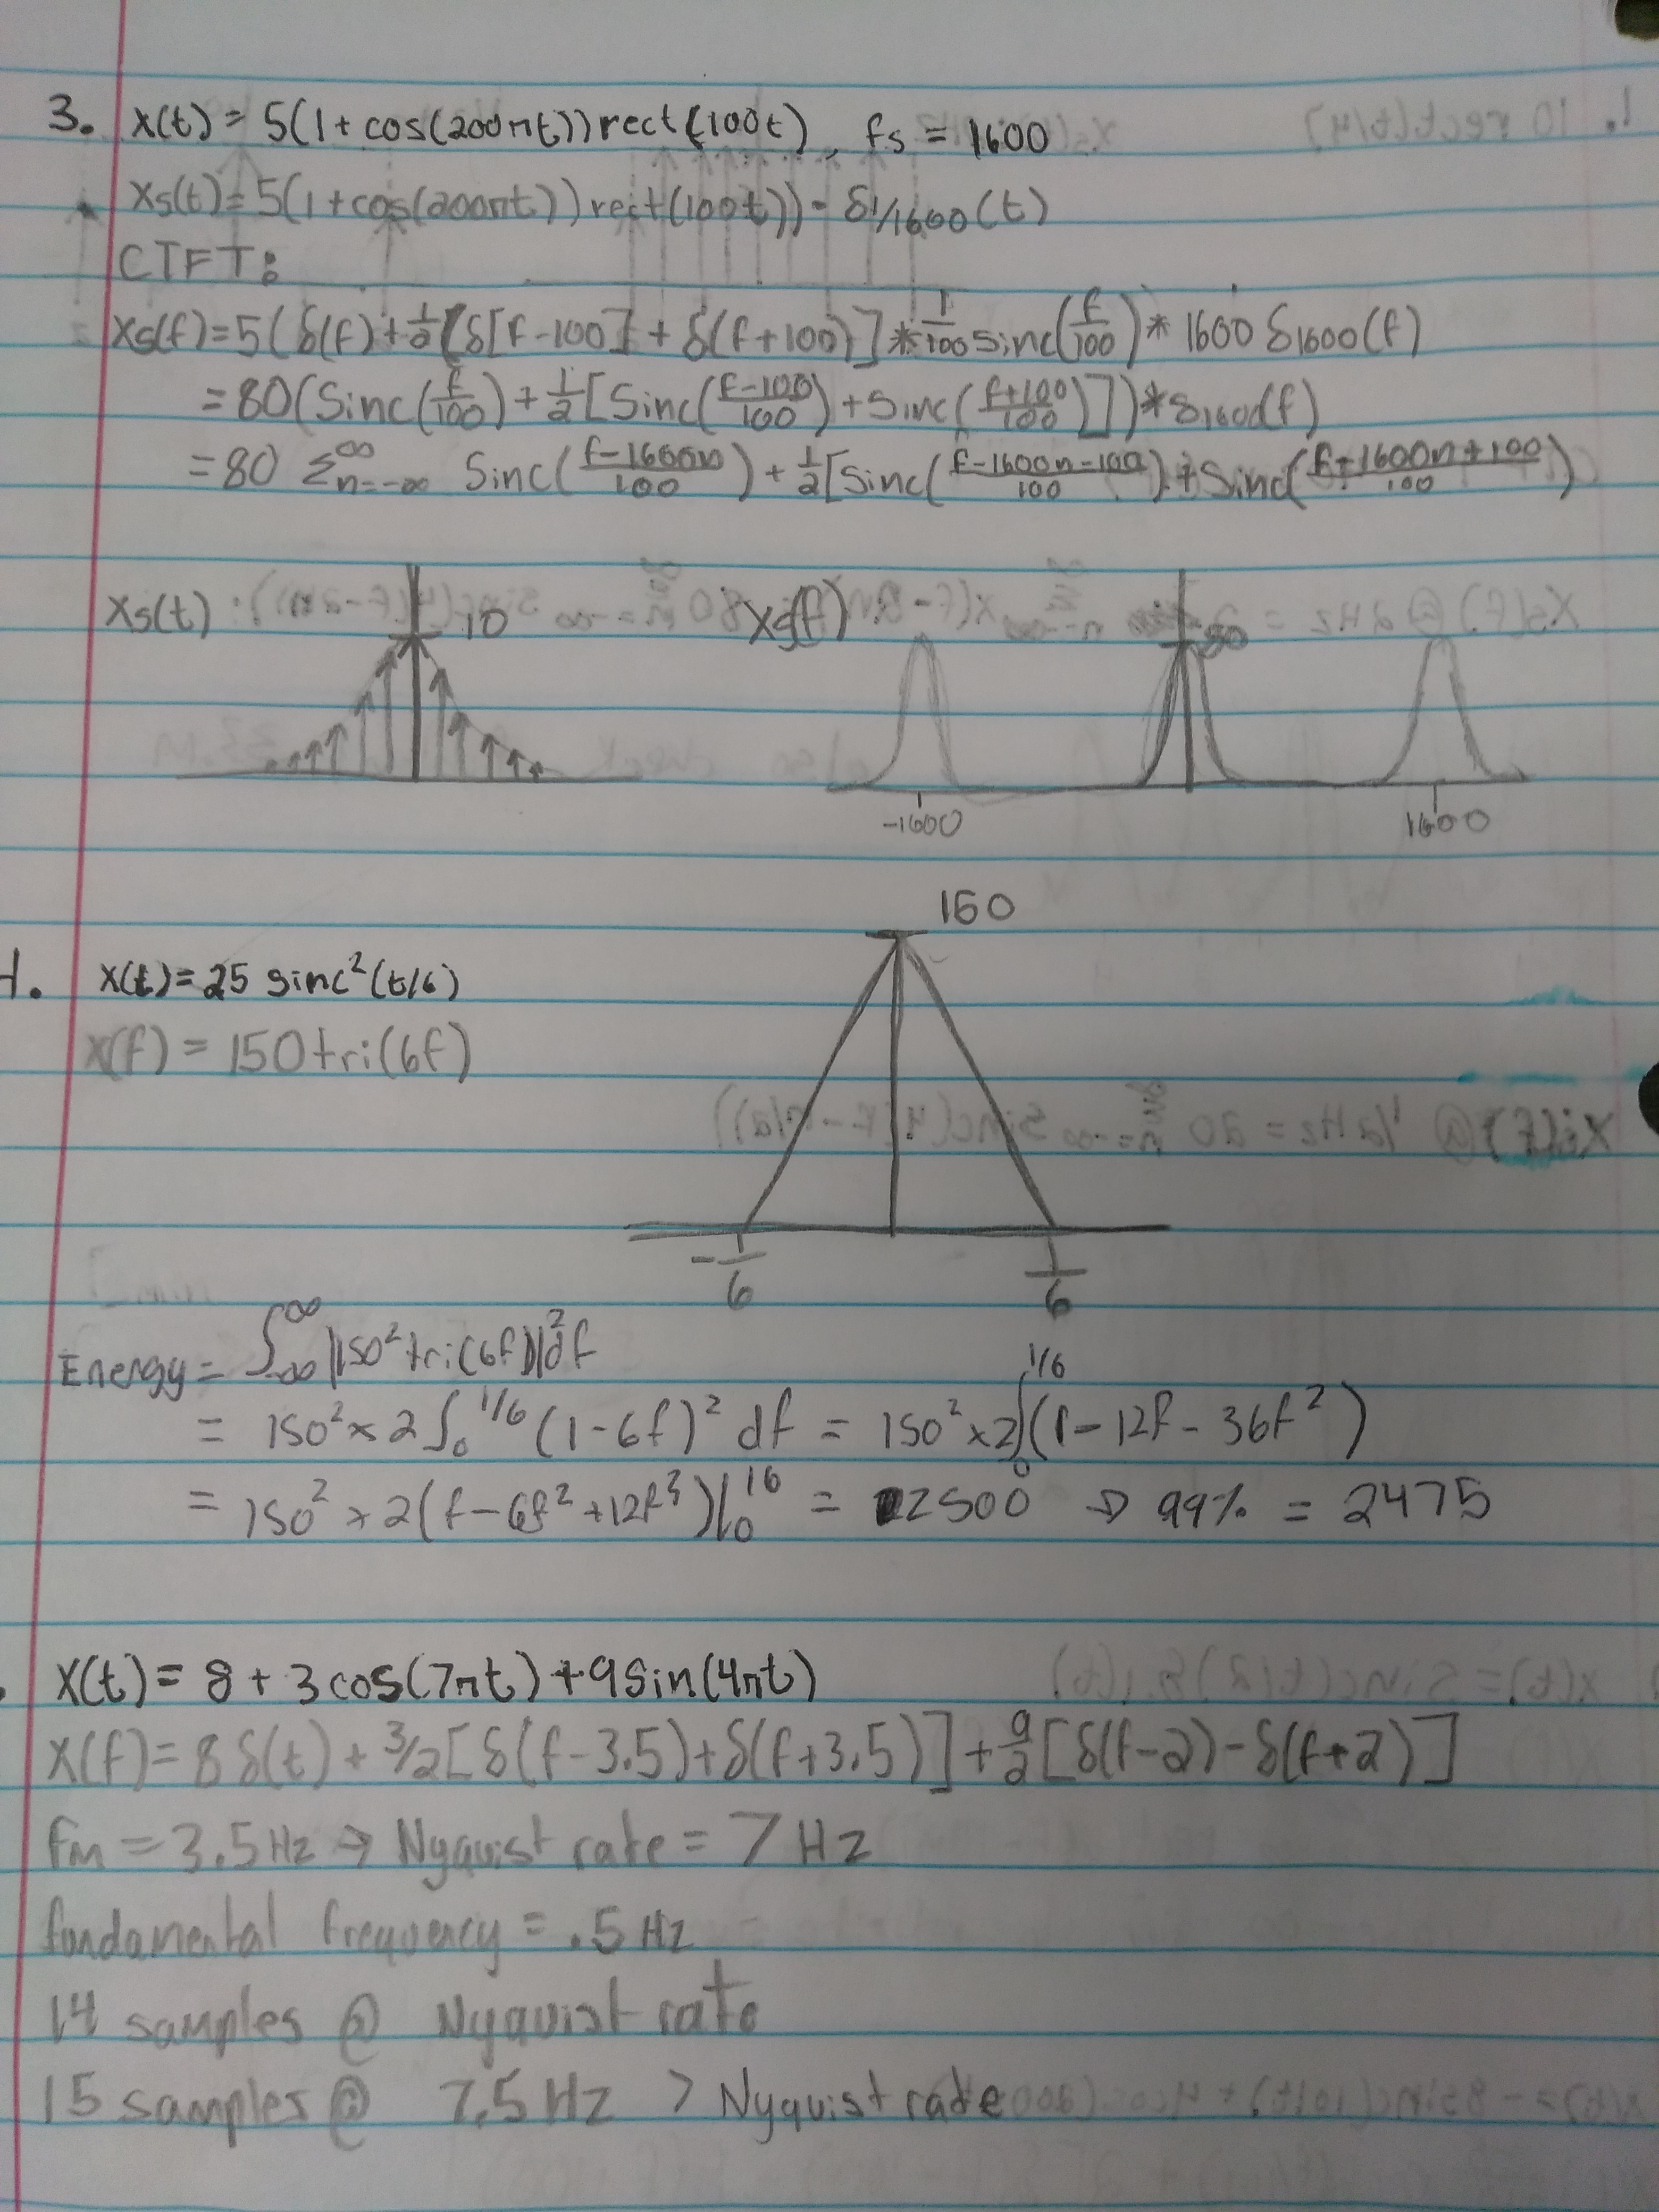 3. x(t) = 5(1 + cos(200πt))rect(100t), fs = 1600
xs(t) = 5(1 + cos(200πt))rect(100t)) · δ1/1600(t)
CTFT:
Xs(f) = 5(δ(f) + 1/2[δ[f-100] + δ(f+100)] * 1/100 sinc(f/100) * 1600 δ1600(f)
= 80(Sinc(f/100) + 1/2[Sinc((f-100)/100) + Sinc((f+100)/100)]) * δ1600(f)
= 80 Σ∞n=-∞ Sinc((f-1600n)/100) + 1/2[Sinc((f-1600n-100)/100) + Sinc((f+1600n+100)/100)
Xs(t) 10 Xs(f) 80
-1600 1600
150
x(t) = 25 sinc²(t/6)
x(f) = 150tri(6f)
-1/6 1/6
Energy = ∫∞-∞ |150² tri(6f)|² df
= 150² x 2 ∫0 1/6 (1-6f)² df = 150² x 2∫0 1/6 (1 - 12f - 36f²)
= 150² x 2(f - 6f² + 12f³)|0 16 = 2500 ⇒ 99% = 2475
x(t) = 8 + 3cos(7πt) + 9Sin(4πt)
X(f) = 8δ(t) + 3/2[δ(f-3.5) + δ(f+3.5)] + 9/2[δ(f-2) - δ(f+2)]
fm = 3.5Hz → Nyquist rate = 7 Hz
fondamental frequency = .5 Hz
14 samples @ Nyquist rate
15 samples @ 7.5 Hz > Nyquist rate